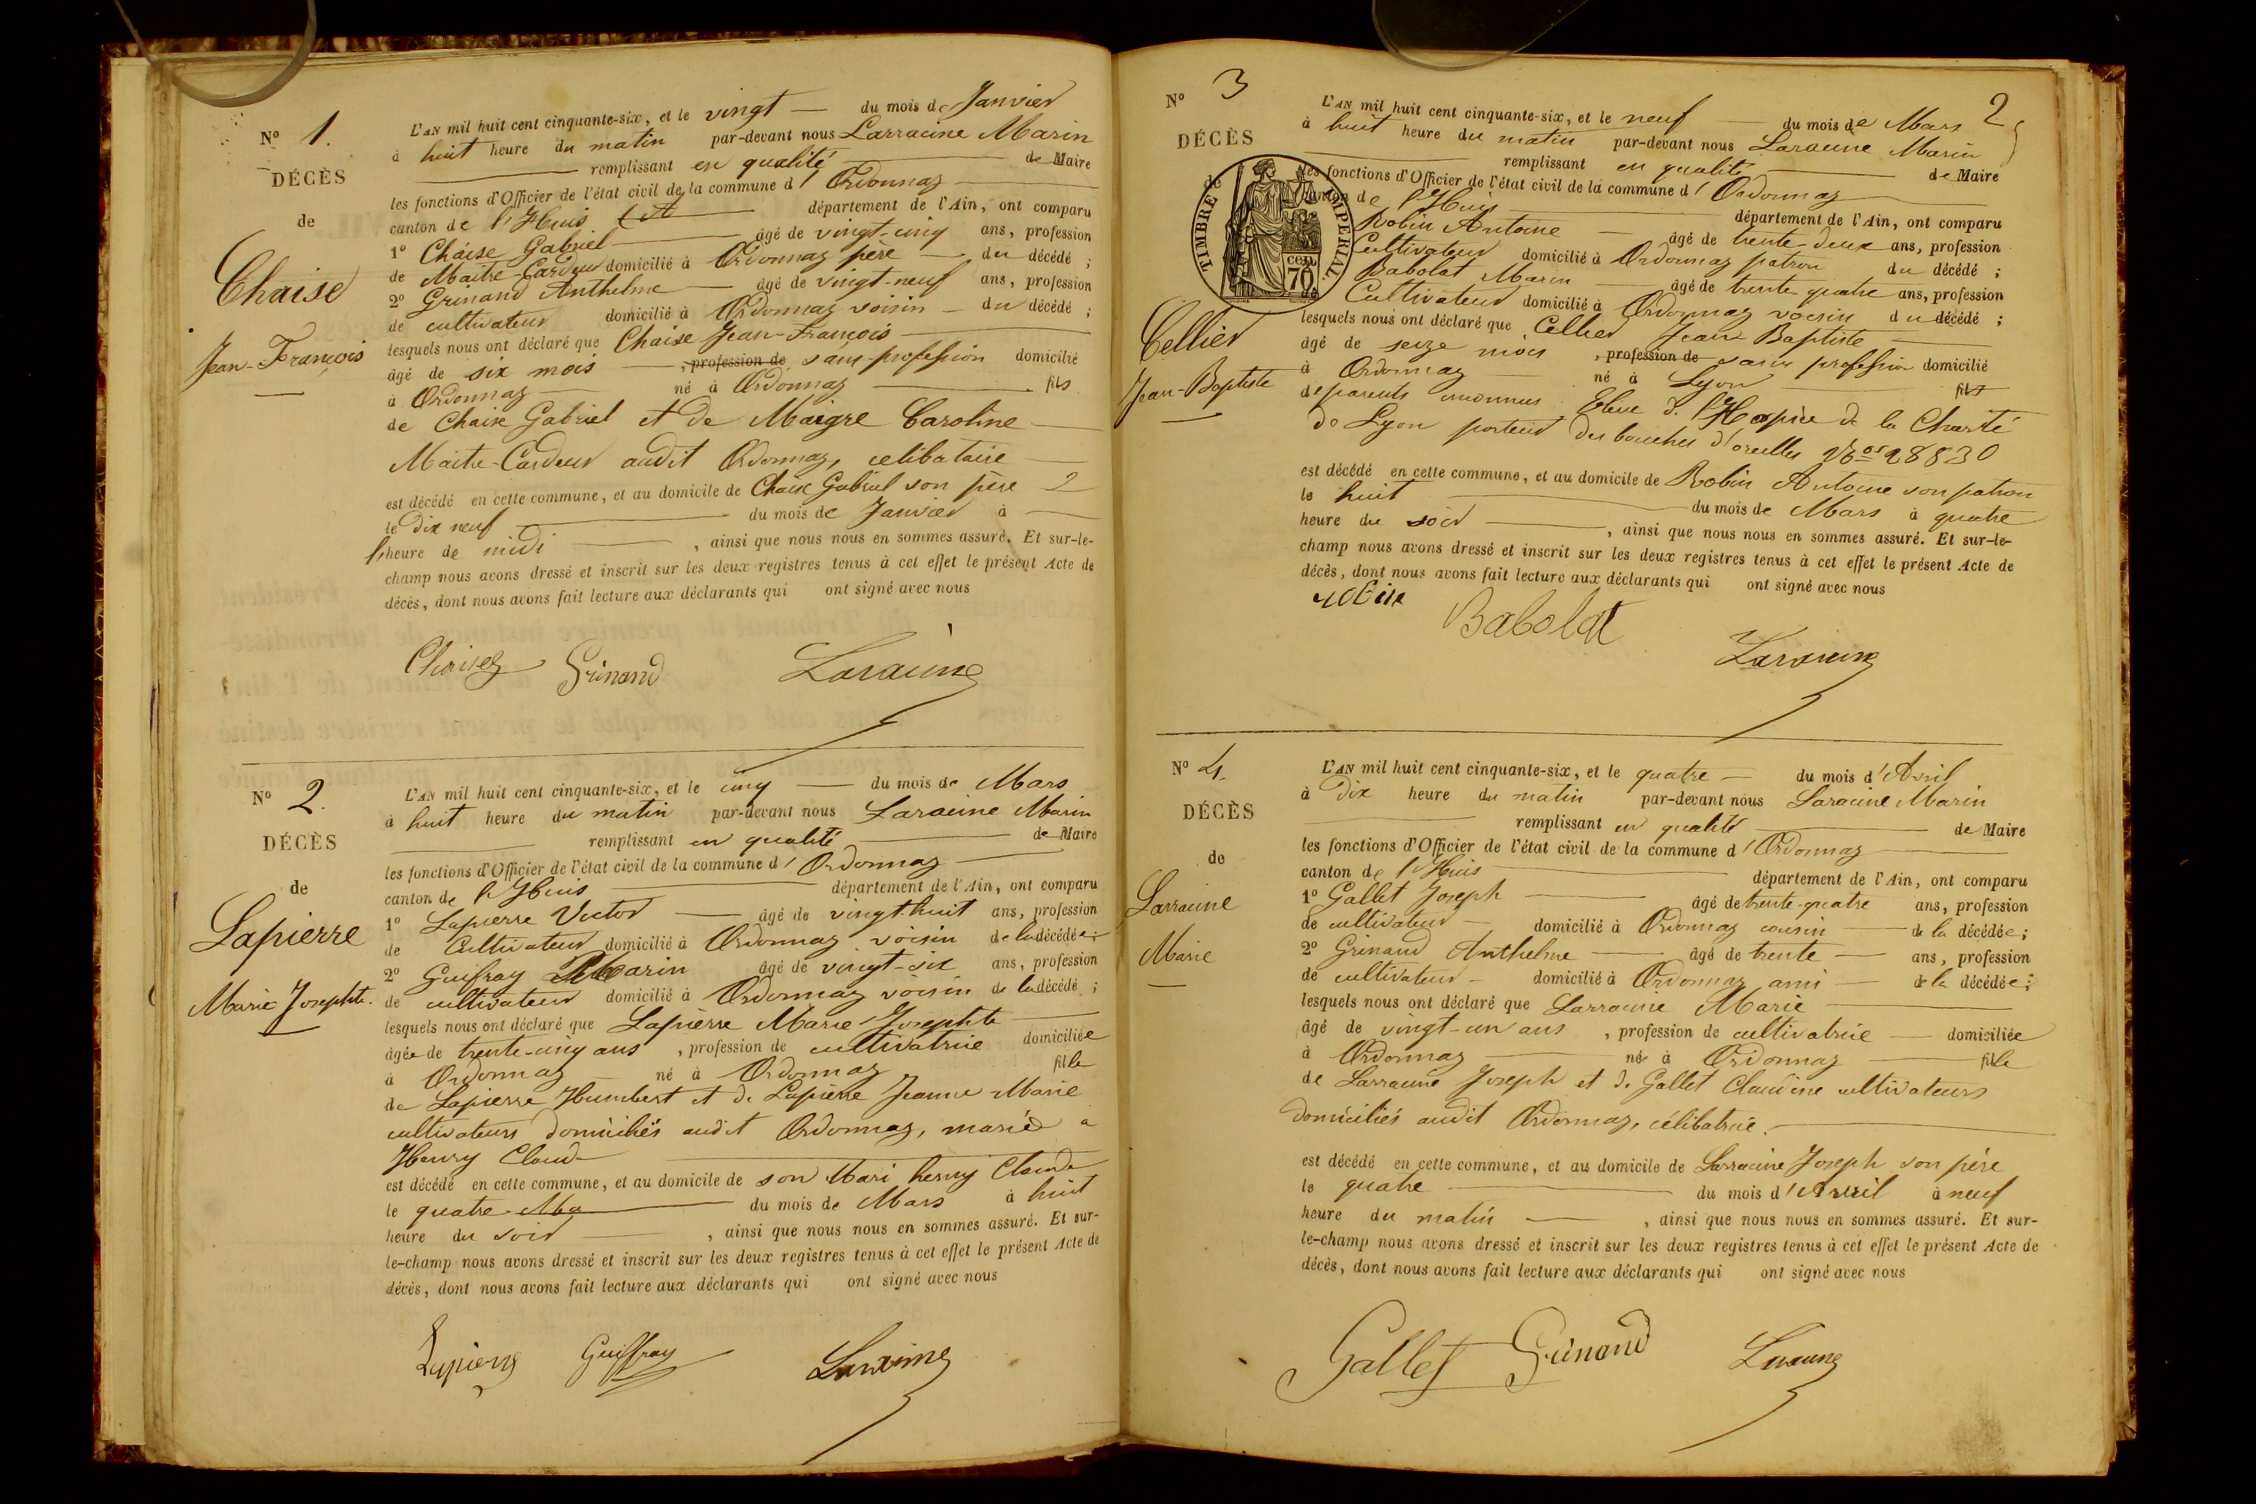 N° 1.
DÉCÈS
de
Chaise
Jean-François
L'AN mil huit cent cinquante-six, et le vingt — du mois de Janvier
à huit heure du matin par-devant nous Larracine Marin
remplissant en qualité de Maire
les fonctions d'Officier de l'état civil de la commune d'Ordonnaz
canton de l'Huis département de l'Ain, ont comparu
1° Chaise Gabriel âgé de vingt-cinq ans, profession
de Maitre-Cardeur domicilié à Ordonnaz père du décédé ;
2° Grinand Anthelme âgé de vingt-neuf ans, profession
de cultivateur domicilié à Ordonnaz voisin du décédé ;
lesquels nous ont déclaré que Chaise Jean-François
âgé de six mois , profession de sans profession domicilié
à Ordonnaz né à Ordonnaz fils
de Chaise Gabriel et de Maigre Caroline
Maitre-Cardeur audit Ordonnaz, celibataire
est décédé en cette commune, et au domicile de Chaise Gabriel son père
le dix neuf du mois de Janvier à
l'heure de midi , ainsi que nous nous en sommes assuré. Et sur-le-
champ nous avons dressé et inscrit sur les deux registres tenus à cet effet le présent Acte de
décès, dont nous avons fait lecture aux déclarants qui ont signé avec nous
Grinand Laracine
N° 2.
DÉCÈS
de
Lapierre
Marie Josephte.
L'AN mil huit cent cinquante-six, et le cinq — du mois de Mars
à huit heure du matin par-devant nous Laracine Marin
remplissant en qualité de Maire
les fonctions d'Officier de l'état civil de la commune d'Ordonnaz
canton de l'Huis département de l'Ain, ont comparu
1° Lapierre Victor âgé de vingt-huit ans, profession
de Cultivateur domicilié à Ordonnaz voisin de la décédée ;
2° Guifray Marin âgé de vingt-six ans, profession
de cultivateur domicilié à Ordonnaz voisin de la décédé ;
lesquels nous ont déclaré que Lapierre Marie Josephte
âgée de trente-cinq ans , profession de cultivatrice domiciliée
à Ordonnaz né à Ordonnaz fille
de Lapierre Humbert et de Lapierre Jeanne Marie
cultivateurs domiciliés audit Ordonnaz, mariée a
Henry Claude
est décédé en cette commune, et au domicile de son Mari henry Claude
le quatre Ma du mois de Mars à huit
heure du soir , ainsi que nous nous en sommes assuré. Et sur-
le-champ nous avons dressé et inscrit sur les deux registres tenus à cet effet le présent Acte de
décès, dont nous avons fait lecture aux déclarants qui ont signé avec nous
Lapierre Guiffray Larracine
2
N° 3
DÉCÈS
de
Cellier
Jean-Baptiste
TIMBRE IMPERIAL
70 cen.
L'AN mil huit cent cinquante-six, et le neuf du mois de Mars
à huit heure du matin par-devant nous Laracine Marin
remplissant en qualité de Maire
les fonctions d'Officier de l'état civil de la commune d'Ordonnaz
canton de l'Huis département de l'Ain, ont comparu
Robin Antoine âgé de trente-deux ans, profession
Cultivateur domicilié à Ordonnaz patron du décédé ;
Babolat Marin âgé de trente quatre ans, profession
de Cultivateur domicilié à Ordonnaz voisin du décédé ;
lesquels nous ont déclaré que Cellier Jean Baptiste
âgé de seize mois , profession de sans profession domicilié
à Ordonnaz né à Lyon fils
de parents inconnus. Elève de l'Hospice de la Charité
de Lyon porteur des boucles d'oreilles N° 28830
est décédé en cette commune, et au domicile de Robin Antoine son patron
le huit du mois de Mars à quatre
heure du soir , ainsi que nous nous en sommes assuré. Et sur-le-
champ nous avons dressé et inscrit sur les deux registres tenus à cet effet le présent Acte de
décès, dont nous avons fait lecture aux déclarants qui ont signé avec nous
robin Babolat Laracine
N° 4.
DÉCÈS
de
Larracine
Marie
L'AN mil huit cent cinquante-six, et le quatre — du mois d'Avril
à dix heure du matin par-devant nous Laracine Marin
remplissant en qualité de Maire
les fonctions d'Officier de l'état civil de la commune d'Ordonnaz
canton de l'Huis département de l'Ain, ont comparu
1° Gallet Joseph âgé de trente-quatre ans, profession
de cultivateur domicilié à Ordonnaz cousin de la décédée ;
2° Grinand Anthelme âgé de trente ans, profession
de cultivateur domicilié à Ordonnaz ami de la décédée ;
lesquels nous ont déclaré que Larracine Marie
âgé de vingt-un ans , profession de cultivatrice domiciliée
à Ordonnaz né à Ordonnaz fille
de Larracine Joseph et de Gallet Claudine cultivateurs
domiciliés audit Ordonnaz, célibatrice.
est décédé en cette commune, et au domicile de Larracine Joseph son père
le quatre du mois d'Avril à neuf
heure du matin , ainsi que nous nous en sommes assuré. Et sur-
le-champ nous avons dressé et inscrit sur les deux registres tenus à cet effet le présent Acte de
décès, dont nous avons fait lecture aux déclarants qui ont signé avec nous
Gallet Grinand Laracine